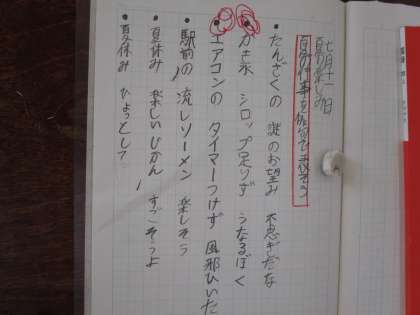 七月十一日
夏の楽しみ
夏の行事を俳句で表そう
・たんざくの 謎のお望み 不思ぎだな
・かき氷 シロップ足りず うなるぼく
・エアコンの タイマーつけず 風邪ひいた
・駅前の 流しソーメン 楽しそう
・夏休み 楽しいじかん すごそうよ
・夏休み ひょっとして